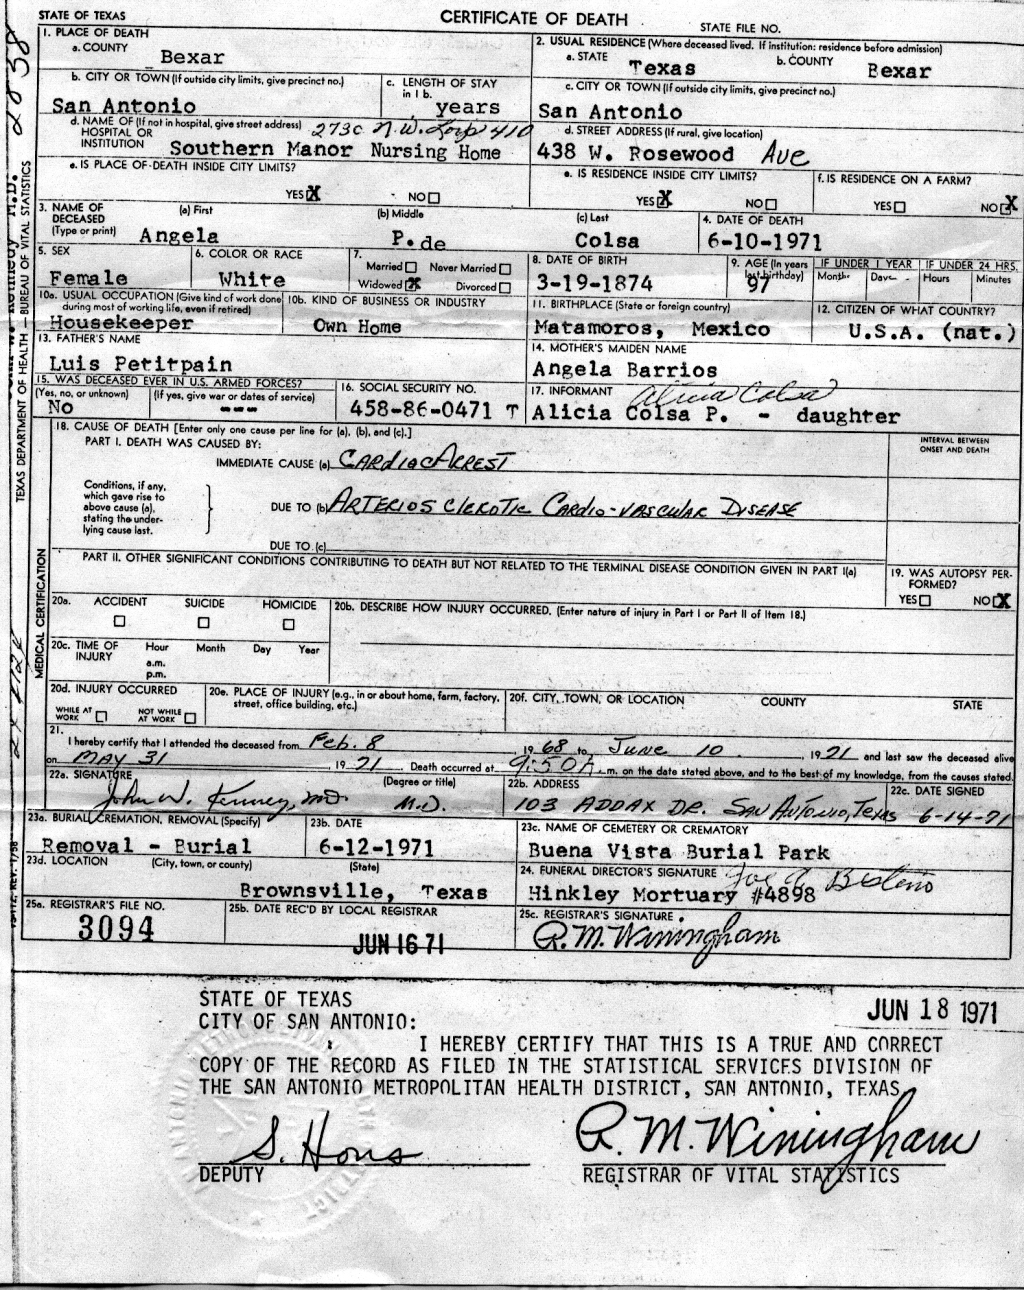 STATE OF TEXAS
CERTIFICATE OF DEATH
STATE FILE NO.
1. PLACE OF DEATH
a. COUNTY
Bexar
2. USUAL RESIDENCE (Where deceased lived. If institution: residence before admission)
a. STATE
Texas
b. COUNTY
Bexar
b. CITY OR TOWN (If outside city limits, give precinct no.)
San Antonio
c. LENGTH OF STAY in 1 b.
years
c. CITY OR TOWN (If outside city limits, give precinct no.)
San Antonio
d. NAME OF (If not in hospital, give street address)
HOSPITAL OR
INSTITUTION
N.W. Loop 410
Southern Manor Nursing Home
d. STREET ADDRESS (If rural, give location)
438 W. Rosewood Ave
e. IS PLACE OF DEATH INSIDE CITY LIMITS?
YES X NO
e. IS RESIDENCE INSIDE CITY LIMITS?
YES X NO
f. IS RESIDENCE ON A FARM?
YES NO X
3. NAME OF DECEASED (Type or print)
(a) First
Angela
(b) Middle
P. de
(c) Last
Colsa
4. DATE OF DEATH
6-10-1971
5. SEX
Female
6. COLOR OR RACE
White
7.
Married Never Married
Widowed X Divorced
8. DATE OF BIRTH
3-19-1874
9. AGE (In years last birthday)
97
IF UNDER 1 YEAR
Months Days
IF UNDER 24 HRS.
Hours Minutes
10a. USUAL OCCUPATION (Give kind of work done during most of working life, even if retired)
Housekeeper
10b. KIND OF BUSINESS OR INDUSTRY
Own Home
11. BIRTHPLACE (State or foreign country)
Matamoros, Mexico
12. CITIZEN OF WHAT COUNTRY?
U.S.A. (nat.)
13. FATHER'S NAME
Luis Petitpain
14. MOTHER'S MAIDEN NAME
Angela Barrios
15. WAS DECEASED EVER IN U.S. ARMED FORCES?
(Yes, no, or unknown)
No
(If yes, give war or dates of service)
---
16. SOCIAL SECURITY NO.
458-86-0471 T
17. INFORMANT
Alicia Colsa
Alicia Colsa P. - daughter
18. CAUSE OF DEATH [Enter only one cause per line for (a), (b), and (c).]
PART I. DEATH WAS CAUSED BY:
INTERVAL BETWEEN ONSET AND DEATH
IMMEDIATE CAUSE (a) Cardiac Arrest
Conditions, if any, which gave rise to above cause (a), stating the underlying cause last.
DUE TO (b) Arteriosclerotic Cardio-vascular Disease
DUE TO (c)
PART II. OTHER SIGNIFICANT CONDITIONS CONTRIBUTING TO DEATH BUT NOT RELATED TO THE TERMINAL DISEASE CONDITION GIVEN IN PART I(a)
19. WAS AUTOPSY PERFORMED?
YES NO X
20a. ACCIDENT SUICIDE HOMICIDE
20b. DESCRIBE HOW INJURY OCCURRED. (Enter nature of injury in Part I or Part II of Item 18.)
20c. TIME OF INJURY
Hour Month Day Year
a.m.
p.m.
20d. INJURY OCCURRED
WHILE AT WORK NOT WHILE AT WORK
20e. PLACE OF INJURY (e.g., in or about home, farm, factory, street, office building, etc.)
20f. CITY, TOWN, OR LOCATION COUNTY STATE
21.
I hereby certify that I attended the deceased from Feb. 8 1968 to June 10 1971 and last saw the deceased alive
on May 31, 1971 Death occurred at 9:50A.m. on the date stated above, and to the best of my knowledge, from the causes stated.
22a. SIGNATURE (Degree or title)
John W. Kenney, MD M.D.
22b. ADDRESS
103 Addax Dr. San Antonio, Texas
22c. DATE SIGNED
6-14-71
23a. BURIAL, CREMATION, REMOVAL (Specify)
Removal - Burial
23b. DATE
6-12-1971
23c. NAME OF CEMETERY OR CREMATORY
Buena Vista Burial Park
23d. LOCATION (City, town, or county) (State)
Brownsville, Texas
24. FUNERAL DIRECTOR'S SIGNATURE
Hinkley Mortuary #4898
25a. REGISTRAR'S FILE NO.
3094
25b. DATE REC'D BY LOCAL REGISTRAR
JUN 16 71
25c. REGISTRAR'S SIGNATURE
R.M. Winingham
TEXAS DEPARTMENT OF HEALTH — BUREAU OF VITAL STATISTICS
MEDICAL CERTIFICATION
STATE OF TEXAS
CITY OF SAN ANTONIO:
JUN 18 1971
I HEREBY CERTIFY THAT THIS IS A TRUE AND CORRECT
COPY OF THE RECORD AS FILED IN THE STATISTICAL SERVICES DIVISION OF
THE SAN ANTONIO METROPOLITAN HEALTH DISTRICT, SAN ANTONIO, TEXAS
R.M. Winingham
DEPUTY
REGISTRAR OF VITAL STATISTICS